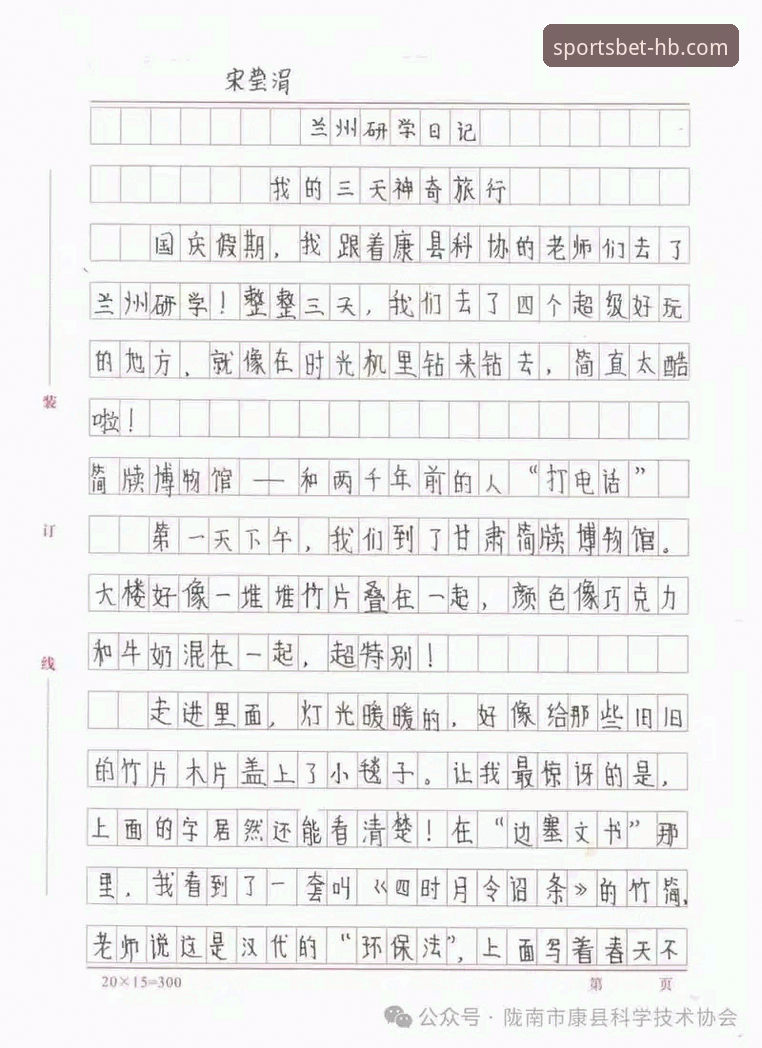 sportsbet-hb.com
宋莹涓
兰州研学日记
我的三天神奇旅行
国庆假期，我跟着康县科协的老师们去了
兰州研学！整整三天，我们去了四个超级好玩
的地方，就像在时光机里钻来钻去，简直太酷
啦！
简牍博物馆——和两千年前的人“打电话”
第一天下午，我们到了甘肃简牍博物馆。
大楼好像一堆堆竹片叠在一起，颜色像巧克力
和牛奶混在一起，超特别！
走进里面，灯光暖暖的，好像给那些旧旧
的竹片木片盖上了小毯子。让我最惊讶的是，
上面的字居然还能看清楚！在“边塞文书”那
里，我看到了一套叫《四时月令诏条》的竹简，
老师说这是汉代的“环保法”，上面写着春天不
装
订
线
20×15=300
第 页
公众号·陇南市康县科学技术协会